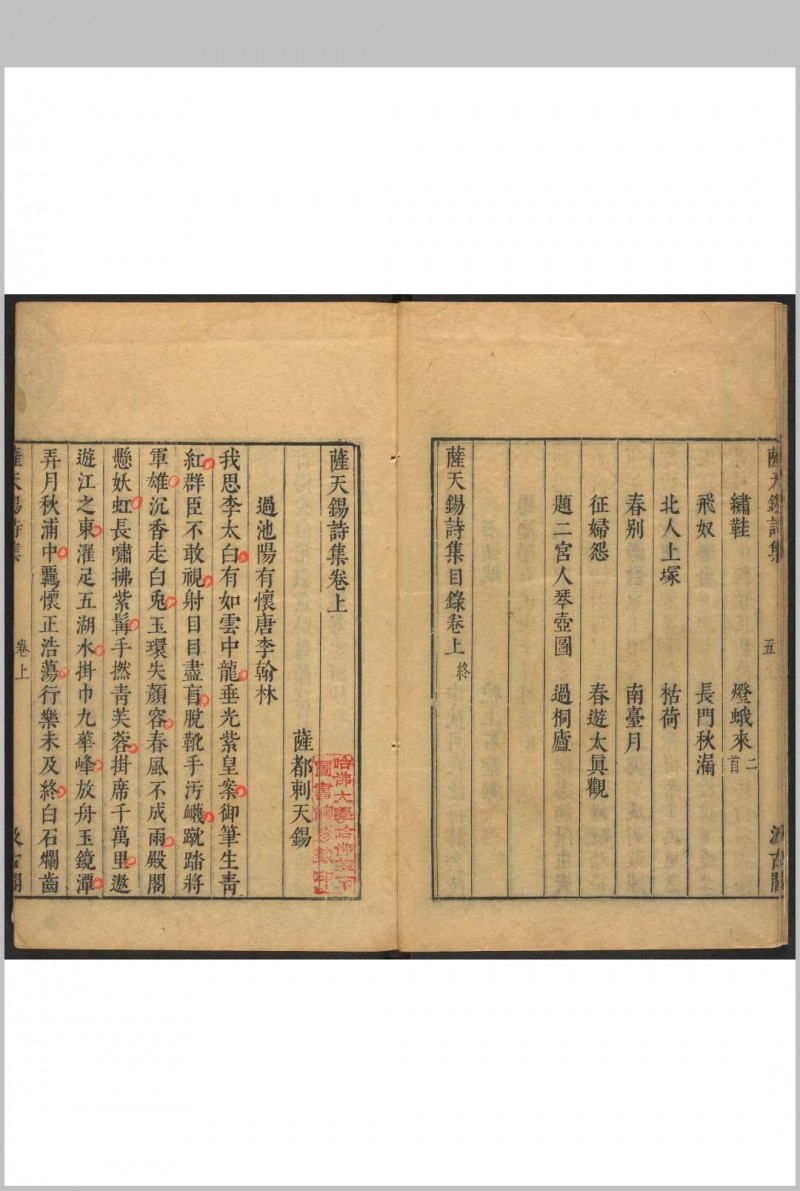 薩天錫詩集
五
汲古閣
繡鞋
燈蛾來二首
飛奴
長門秋漏
北人上塚
枯荷
春别
南臺月
征婦怨
春遊太眞觀
題二宮人琴壺圖
過桐廬
薩天錫詩集目錄卷上終
薩天錫詩集卷上
薩都剌天錫
過池陽有懷唐李翰林
我思李太白有如雲中龍垂光紫皇案御筆生靑
紅群臣不敢視射目目盡盲脫靴手汚衊蹴踏將
軍雄沉香走白兎玉環失顏容春風不成雨殿閣
懸妖虹長嘯拂紫髯手撚靑芙蓉掛席千萬里遨
遊江之東濯足五湖水掛巾九華峰放舟玉鏡潭
弄月秋浦中羈懷正浩蕩行樂未及終白石爛齒
薩天錫詩集
卷上
汲古閣
哈佛大學哈佛燕京
圖書館珍藏印